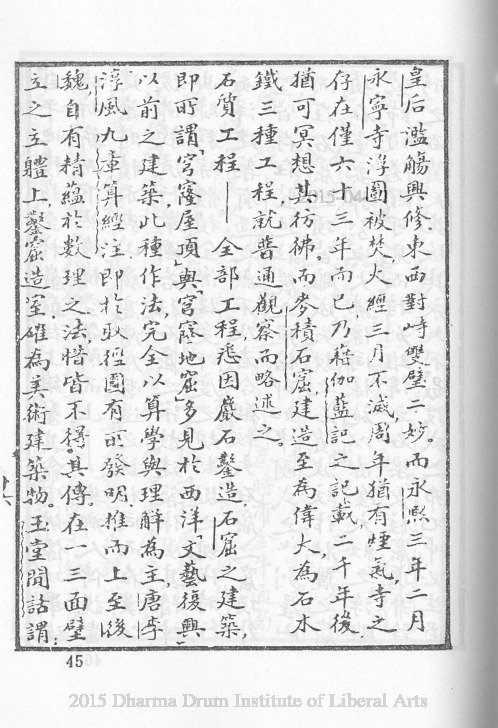 皇后濫觴興修東西對峙雙璧二妙。而永熙三年二月
永寧寺浮圖被焚，火經三月不滅，周年猶有煙氣，寺之
存在僅六十三年而已，乃藉伽藍記之記載，二千年後，
猶可冥想其彷彿。而麥積石窟，建造至為偉大，為石木
鐵三種工程，就普通觀察而略述之。
石質工程——全部工程，悉因巖石鑿造，石窟之建築，
即所謂「宮窿屋頂」與「宮窿地窟」多見於西洋「文藝復興」
以前之建築，此種作法，完全以算學與理解為主，唐李
淳風九章算經注即於取徑圓有所發明，推而上至後
魏，自有精蘊於數理之法，惜皆不得其傳。在一三面壁
立之立體上，鑿窟造室，確為美術建築物。玉堂閒話謂：
十六
45
2015 Dharma Drum Institute of Liberal Arts